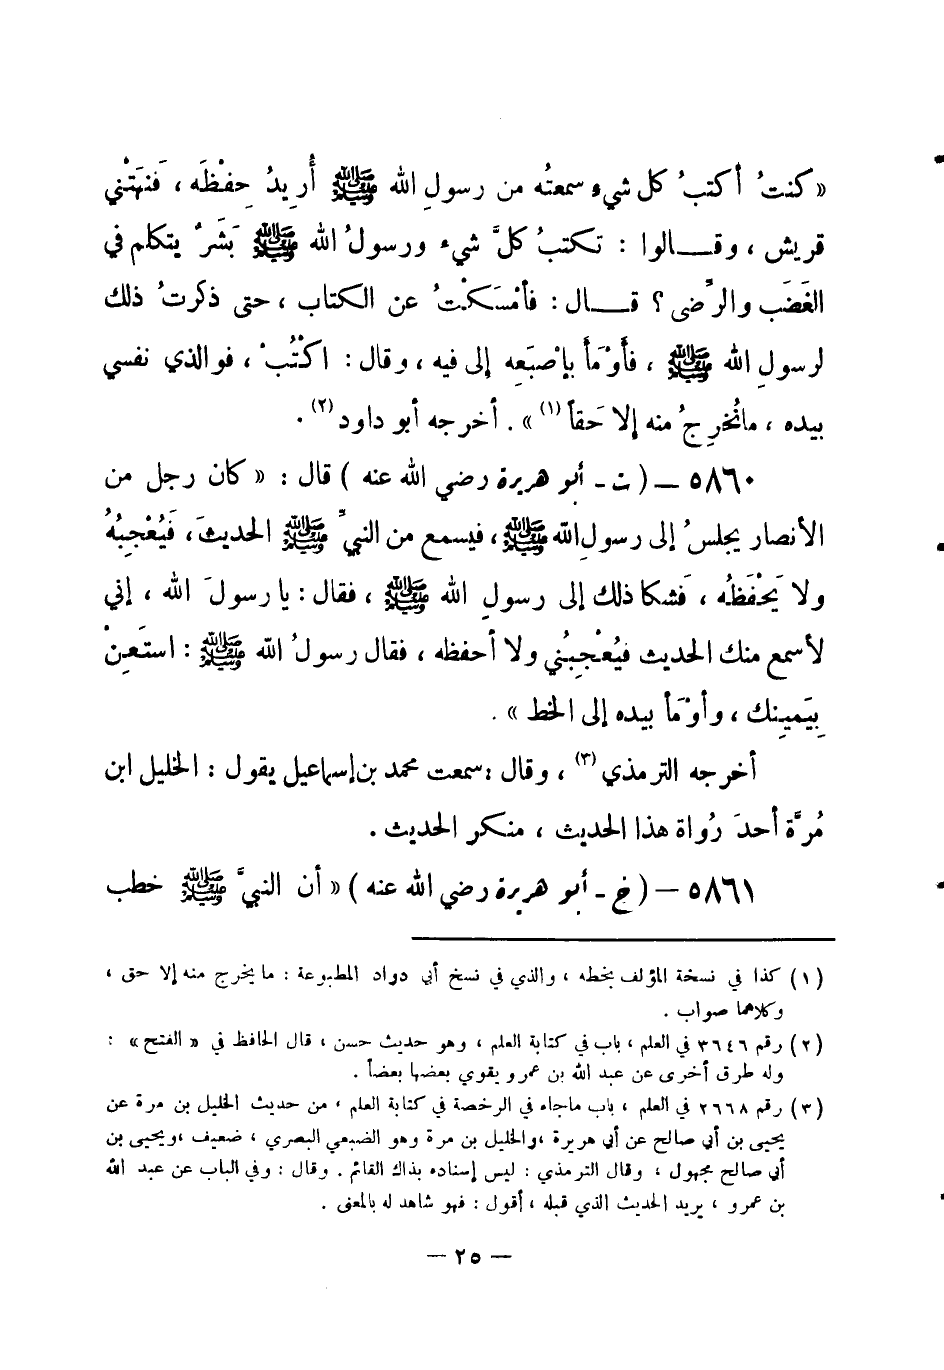 « كنتُ أكتبُ كل شيء سمعتُه من رسولِ الله ﷺ أُرِيدُ حِفْظَه ، فَنهَتْني
قريش ، وقـــالوا : تكتبُ كلَّ شيء ورسولُ الله ﷺ بَشَرٌ يتكلم في
الغَضَب والرِّضى ؟ قـــال : فأمْسَكْتُ عن الكتاب ، حتى ذكرتُ ذلك
لرسولِ الله ﷺ ، فأَوْمَأَ بإصْبَعِه إلى فيه ، وقال : اكْتُبْ ، فوالذي نفسي
بيده ، مانُخرِجُ منه إلا حَقاً (١) » . أخرجه أبو داود (٢) .
٥٨٦٠ – ( ت - أبو هريرة رضي الله عنه ) قال : « كان رجل من
الأنصار يجلسُ إلى رسولِ الله ﷺ ، فيسمع من النبيِّ ﷺ الحديثَ ، فَيُعْجِبُهُ
ولا يَحْفَظُه ، فَشكا ذلك إلى رسولِ الله ﷺ ، فقال : يا رسولَ الله ، إني
لأسمع منك الحديث فيُعْجِبُني ولا أحفظه ، فقال رسولُ الله ﷺ : استَعِنْ
بِيَمينِك ، وأوْمَأ بيده إلى الخط » .
أخرجه الترمذي (٣) ، وقال : سمعت محمد بن إسماعيل يقول : الخليل ابن
مُرَّة أحدَ رُواة هذا الحديث ، منكر الحديث .
٥٨٦١ – ( خ - أبو هريرة رضي الله عنه ) « أن النبيَّ ﷺ خطب
(١) كذا في نسخة المؤلف بخطه ، والذي في نسخ أبي دواد المطبوعة : ما يخرج منه إلا حق ،
وكلاهما صواب .
(٢) رقم ٣٦٤٦ في العلم ، باب في كتابة العلم ، وهو حديث حسن ، قال الحافظ في « الفتح » :
وله طرق أخرى عن عبد الله بن عمرو يقوي بعضها بعضاً .
(٣) رقم ٢٦٦٨ في العلم ، باب ماجاء في الرخصة في كتابة العلم ، من حديث الخليل بن مرة عن
يحيى بن أبي صالح عن أبي هريرة ، والخليل بن مرة وهو الضبعي البصري ، ضعيف ، ويحيى بن
أبي صالح مجهول ، وقال الترمذي : ليس إسناده بذاك القائم . وقال : وفي الباب عن عبد الله
بن عمرو ، يريد الحديث الذي قبله ، أقول : فهو شاهد له بالمعنى .
– ٢٥ –